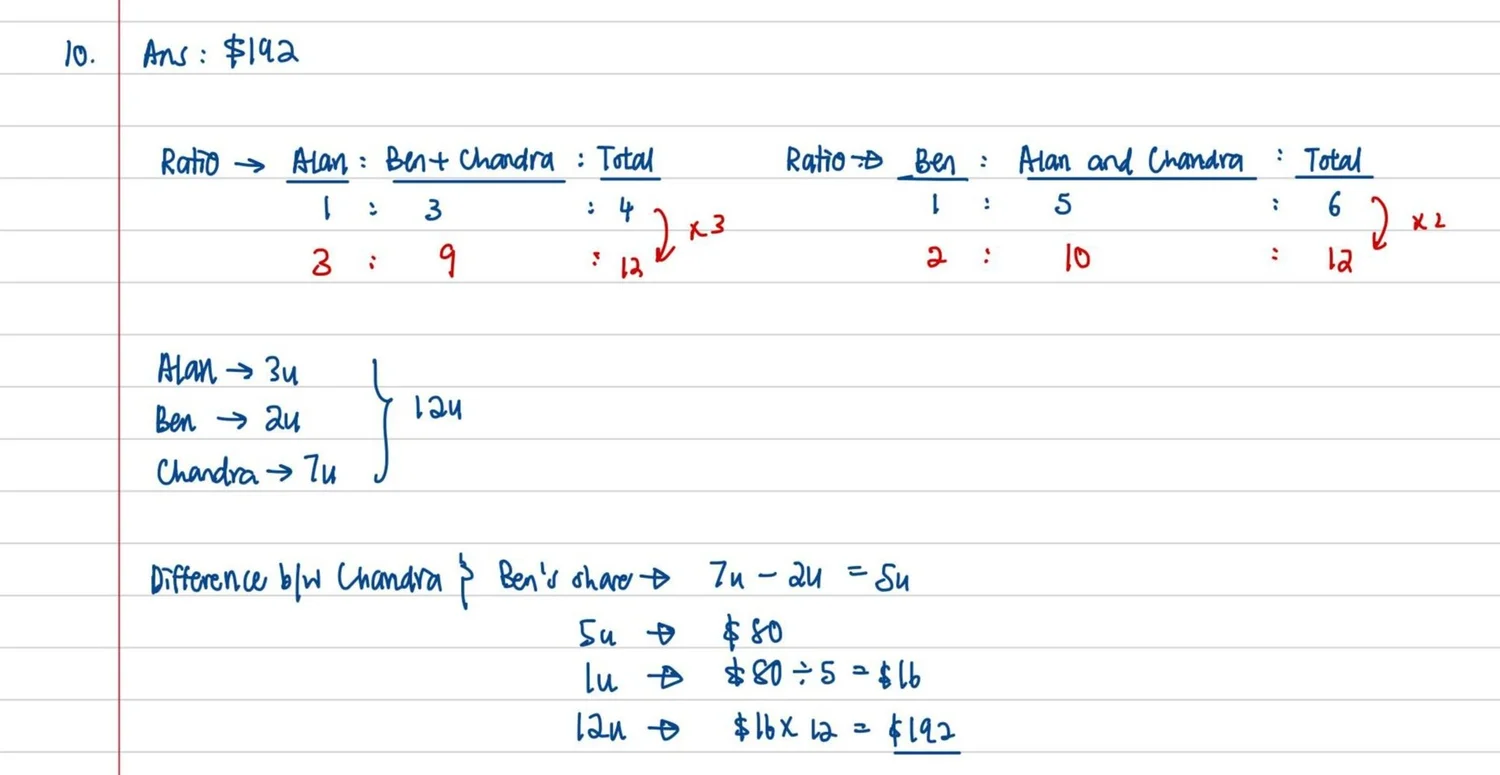 10. Ans : $192
Ratio → Alan : Ben + Chandra : Total
1 : 3 : 4
x 3
3 : 9 : 12
Ratio → Ben : Alan and Chandra : Total
1 : 5 : 6
x 2
2 : 10 : 12
Alan → 3u
Ben → 2u
Chandra → 7u
12u
Difference b/w Chandra } Ben's share → 7u - 2u = 5u
5u → $80
1u → $80 ÷ 5 = $16
12u → $16 x 12 = $192